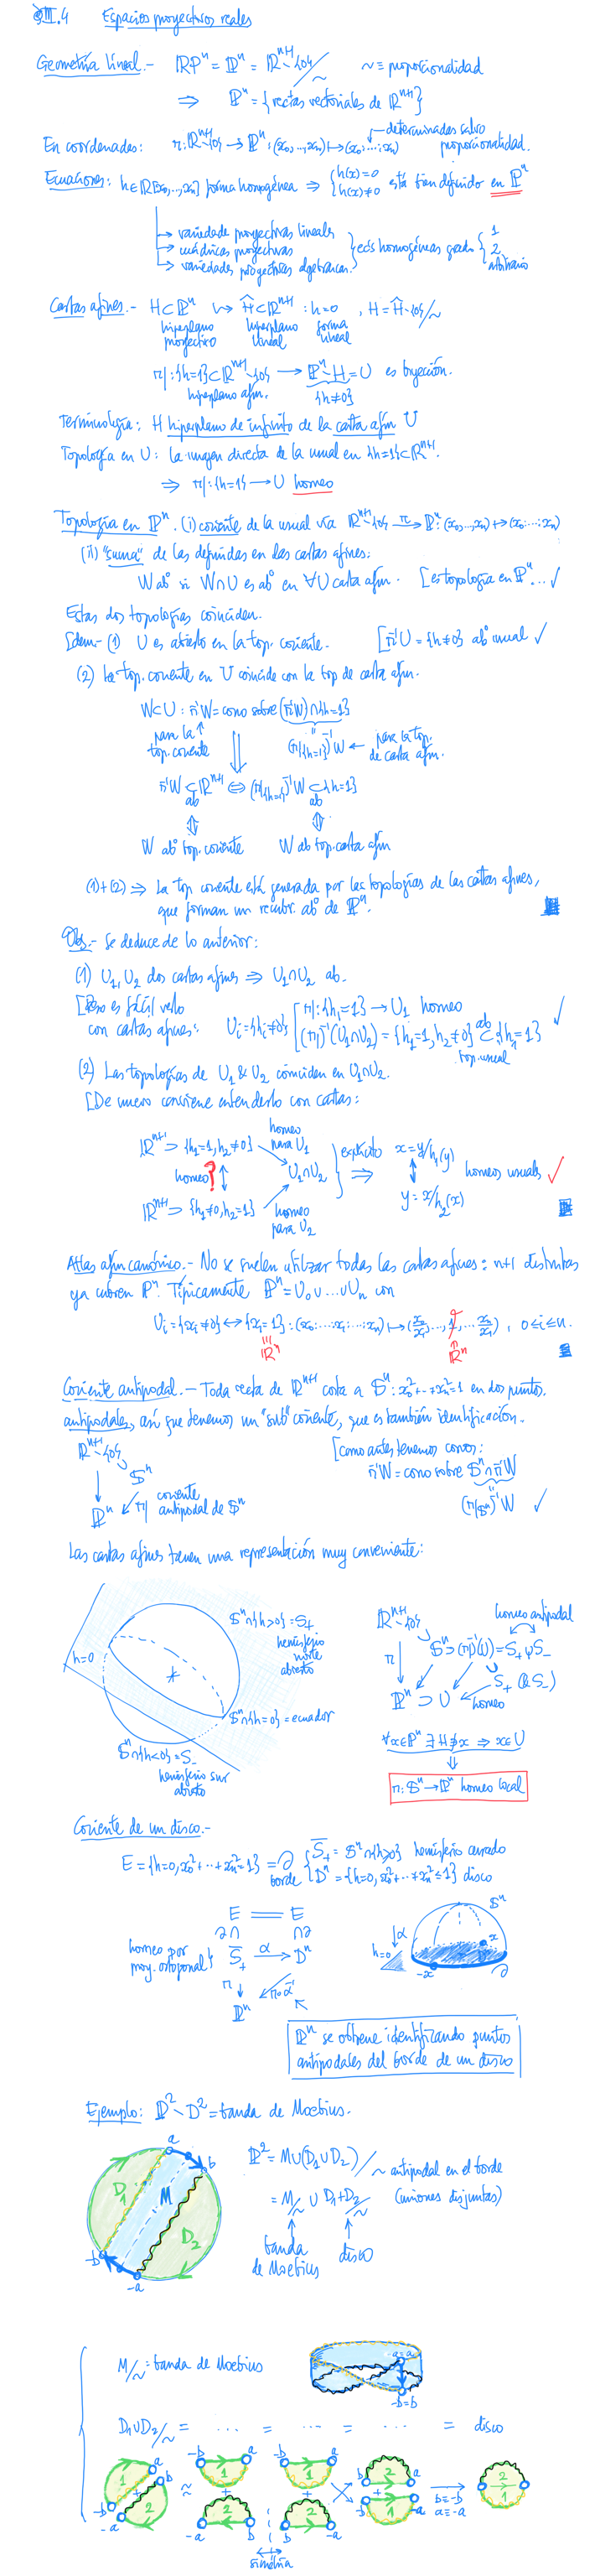 III.4 Espacios proyectivos reales
Geometría lineal.- ℝPⁿ = ℙⁿ = ℝⁿ⁺¹∖{0}/∼ ∼ ≡ proporcionalidad
⇒ ℙⁿ = {rectas vectoriales de ℝⁿ⁺¹}
En coordenadas: π: ℝⁿ⁺¹∖{0} → ℙⁿ: (x₀,...,xₙ) ↦ (x₀:...:xₙ) determinadas salvo proporcionalidad.
Ecuaciones: h∈ℝ[x₀,...,xₙ] forma homogénea ⇒ {h(x)=0 h(x)≠0 está bien definido en ℙⁿ
→ variedades proyectivas lineales
→ cuádricas proyectivas
→ variedades proyectivas algebraicas
} ecs homogéneas grado { 1 2 arbitrario
Cartas afines.- H⊂ℙⁿ ↭ Ĥ⊂ℝⁿ⁺¹ : h=0 , H=Ĥ∖{0}/∼
hiperplano proyectivo hiperplano lineal forma lineal
π|: {h=1}⊂ℝⁿ⁺¹∖{0} → ℙⁿ∖H = U es biyección.
hiperplano afín. {h≠0}
Terminología: H hiperplano de infinito de la carta afín U
Topología en U: la imagen directa de la usual en {h=1}⊂ℝⁿ⁺¹.
⇒ π|: {h=1} → U homeo
Topología en ℙⁿ. (i) cociente de la usual vía ℝⁿ⁺¹∖{0} →π ℙⁿ: (x₀,...,xₙ) ↦ (x₀:...:xₙ)
(ii) "suma" de las definidas en las cartas afines:
W abº si W∩U es abº en ∀U carta afín. [es topología en ℙⁿ... ✓
Estas dos topologías coinciden.
[dem- (1) U es abierto en la top. cociente. [π⁻¹U={h≠0} abº usual ✓
(2) la top. cociente en U coincide con la top de carta afín.
W⊂U: π⁻¹W = cono sobre (π⁻¹W)∩{h=1}
para la top. cociente (π|{h=1})⁻¹W ← para la top. de carta afín.
π⁻¹W ⊂ ℝⁿ⁺¹ ⇔ (π|{h=1})⁻¹W ⊂ {h=1}
ab ab
W abº top. cociente W ab top. carta afín
(1)+(2) ⇒ La top cociente está generada por las topologías de las cartas afines,
que forman un recubr. abº de ℙⁿ.
Obs.- Se deduce de lo anterior:
(1) U₁,U₂ dos cartas afines ⇒ U₁∩U₂ ab.
[Pero es fácil verlo con cartas afines: Uᵢ={hᵢ≠0} [ π|: {h₁=1} → U₁ homeo
(π|)⁻¹(U₁∩U₂) = {h₁=1, h₂≠0} ⊂ {h₁=1} ✓
ab top. usual
(2) Las topologías de U₁ & U₂ coinciden en U₁∩U₂.
[De nuevo conviene entenderlo con cartas:
ℝⁿ⁺¹ ⊃ {h₁=1, h₂≠0} homeo para U₁
homeo? ↕ U₁∩U₂ } explícito ⇒ x=y/h₁(y) ↕ y=x/h₂(x) homeos usuales ✓
ℝⁿ⁺¹ ⊃ {h₁≠0, h₂=1} homeo para U₂
Atlas afín canónico.- No se suelen utilizar todas las cartas afines: n+1 distintas
ya cubren ℙⁿ. Típicamente ℙⁿ=U₀∪...∪Uₙ con
Uᵢ={xᵢ≠0} ↔ {xᵢ=1}: (x₀:...:xᵢ:...:xₙ) ↦ (x₀/xᵢ,...,1,...,xₙ/xᵢ), 0≤i≤n.
ℝⁿ ℝⁿ
Cociente antipodal.- Toda recta de ℝⁿ⁺¹ corta a 𝕊ⁿ: x₀²+...+xₙ²=1 en dos puntos
antipodales, así que tenemos un "sub" cociente, que es también identificación.
ℝⁿ⁺¹∖{0} 𝕊ⁿ [como antes tenemos conos:
π⁻¹W = cono sobre 𝕊ⁿ∩π⁻¹W
ℙⁿ π| cociente antipodal de 𝕊ⁿ (π|𝕊ⁿ)⁻¹W ✓
Las cartas afines tienen una representación muy conveniente:
h=0
𝕊ⁿ∩{h>0}=S₊
hemisferio norte abierto
𝕊ⁿ∩{h=0}=ecuador
𝕊ⁿ∩{h<0}=S₋
hemisferio sur abierto
homeo antipodal
ℝⁿ⁺¹∖{0} 𝕊ⁿ⊃(π|)⁻¹(U)=S₊∪S₋
π S₊ (ó S₋)
ℙⁿ ⊃ U homeo
∀x∈ℙⁿ ∃H∌x ⇒ x∈U
π: 𝕊ⁿ→ℙⁿ homeo local
Cociente de un disco.-
E={h=0, x₀²+...+xₙ²=1} = ∂ borde { S̄₊ = 𝕊ⁿ∩{h≥0} hemisferio cerrado
Dⁿ={h=0, x₀²+...+xₙ²≤1} disco
E = E
∂∩ ∩∂
homeo por proy. ortogonal } S̄₊ →α Dⁿ
π ↓ π∘α⁻¹
ℙⁿ
𝕊ⁿ
α
h=0
x
-x
∂
ℙⁿ se obtiene identificando puntos
antipodales del borde de un disco
Ejemplo: ℙ²∖D² = banda de Moebius.
a
b
D₁
M
D₂
-b
-a
ℙ²=M∪(D₁∪D₂)/∼ antipodal en el borde
= M/∼ ∪ D₁+D₂/∼ (uniones disjuntas)
banda de Moebius disco
M/∼ = banda de Moebius
-a=a
-b=b
D₁∪D₂/∼ = ... = ... = ... = disco
a b 1 + 2 -b -a
≈
-b a 1 + 2 -a b
simetría
-b a 1 + 2 b -a
b a 2 + 1 -b -a
b=-b
a=-a
2
1